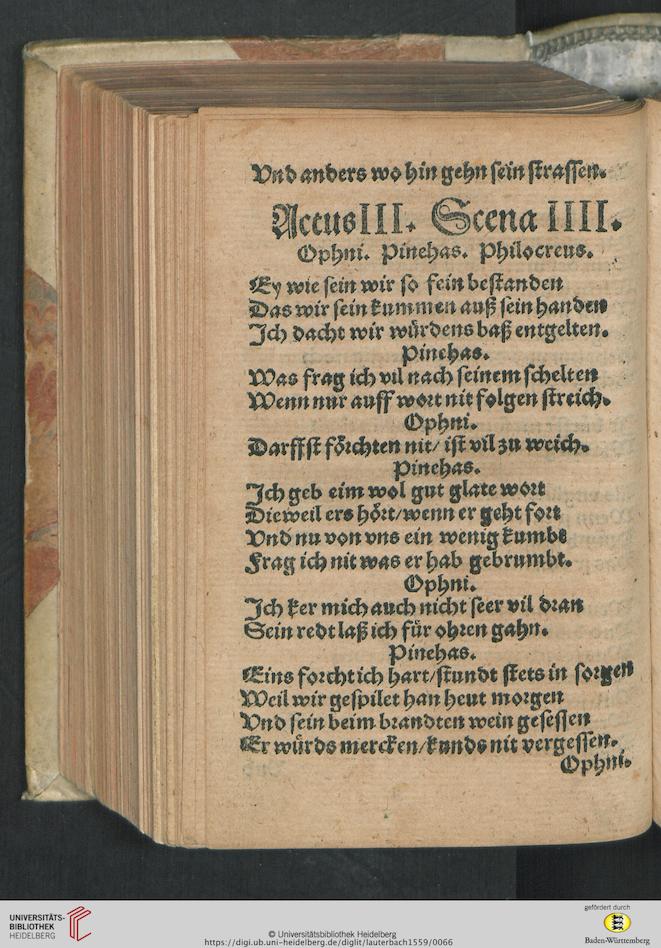 Vnd anders wo hin gehn sein strassen.
Actus III. Scena IIII.
Ophni. Pinehas. Philocreus.
Ey wie sein wir so fein bestanden
Das wir sein kummen auß sein handen
Ich dacht wir würdens baß entgelten.
Pinehas.
Was frag ich vil nach seinem schelten
Wenn nur auff wort nit folgen streich.
Ophni.
Darffst förchten nit/ ist vil zu weich.
Pinehas.
Ich geb eim wol gut glate wort
Dieweil ers hört/wenn er geht fort
Vnd nu von vns ein wenig kumbt
Frag ich nit was er hab gebrumbt.
Ophni.
Ich ker mich auch nicht seer vil dran
Sein redt laß ich für ohren gahn.
Pinehas.
Eins forcht ich hart/stundt stets in sorgen
Weil wir gespilet han heut morgen
Vnd sein beim brandten wein gesessen
Er würds mercken/kunds nit vergessen.
Ophni.
UNIVERSITÄTS-
BIBLIOTHEK
HEIDELBERG
© Universitätsbibliothek Heidelberg
https://digi.ub.uni-heidelberg.de/diglit/lauterbach1559/0066
gefördert durch
Baden-Württemberg